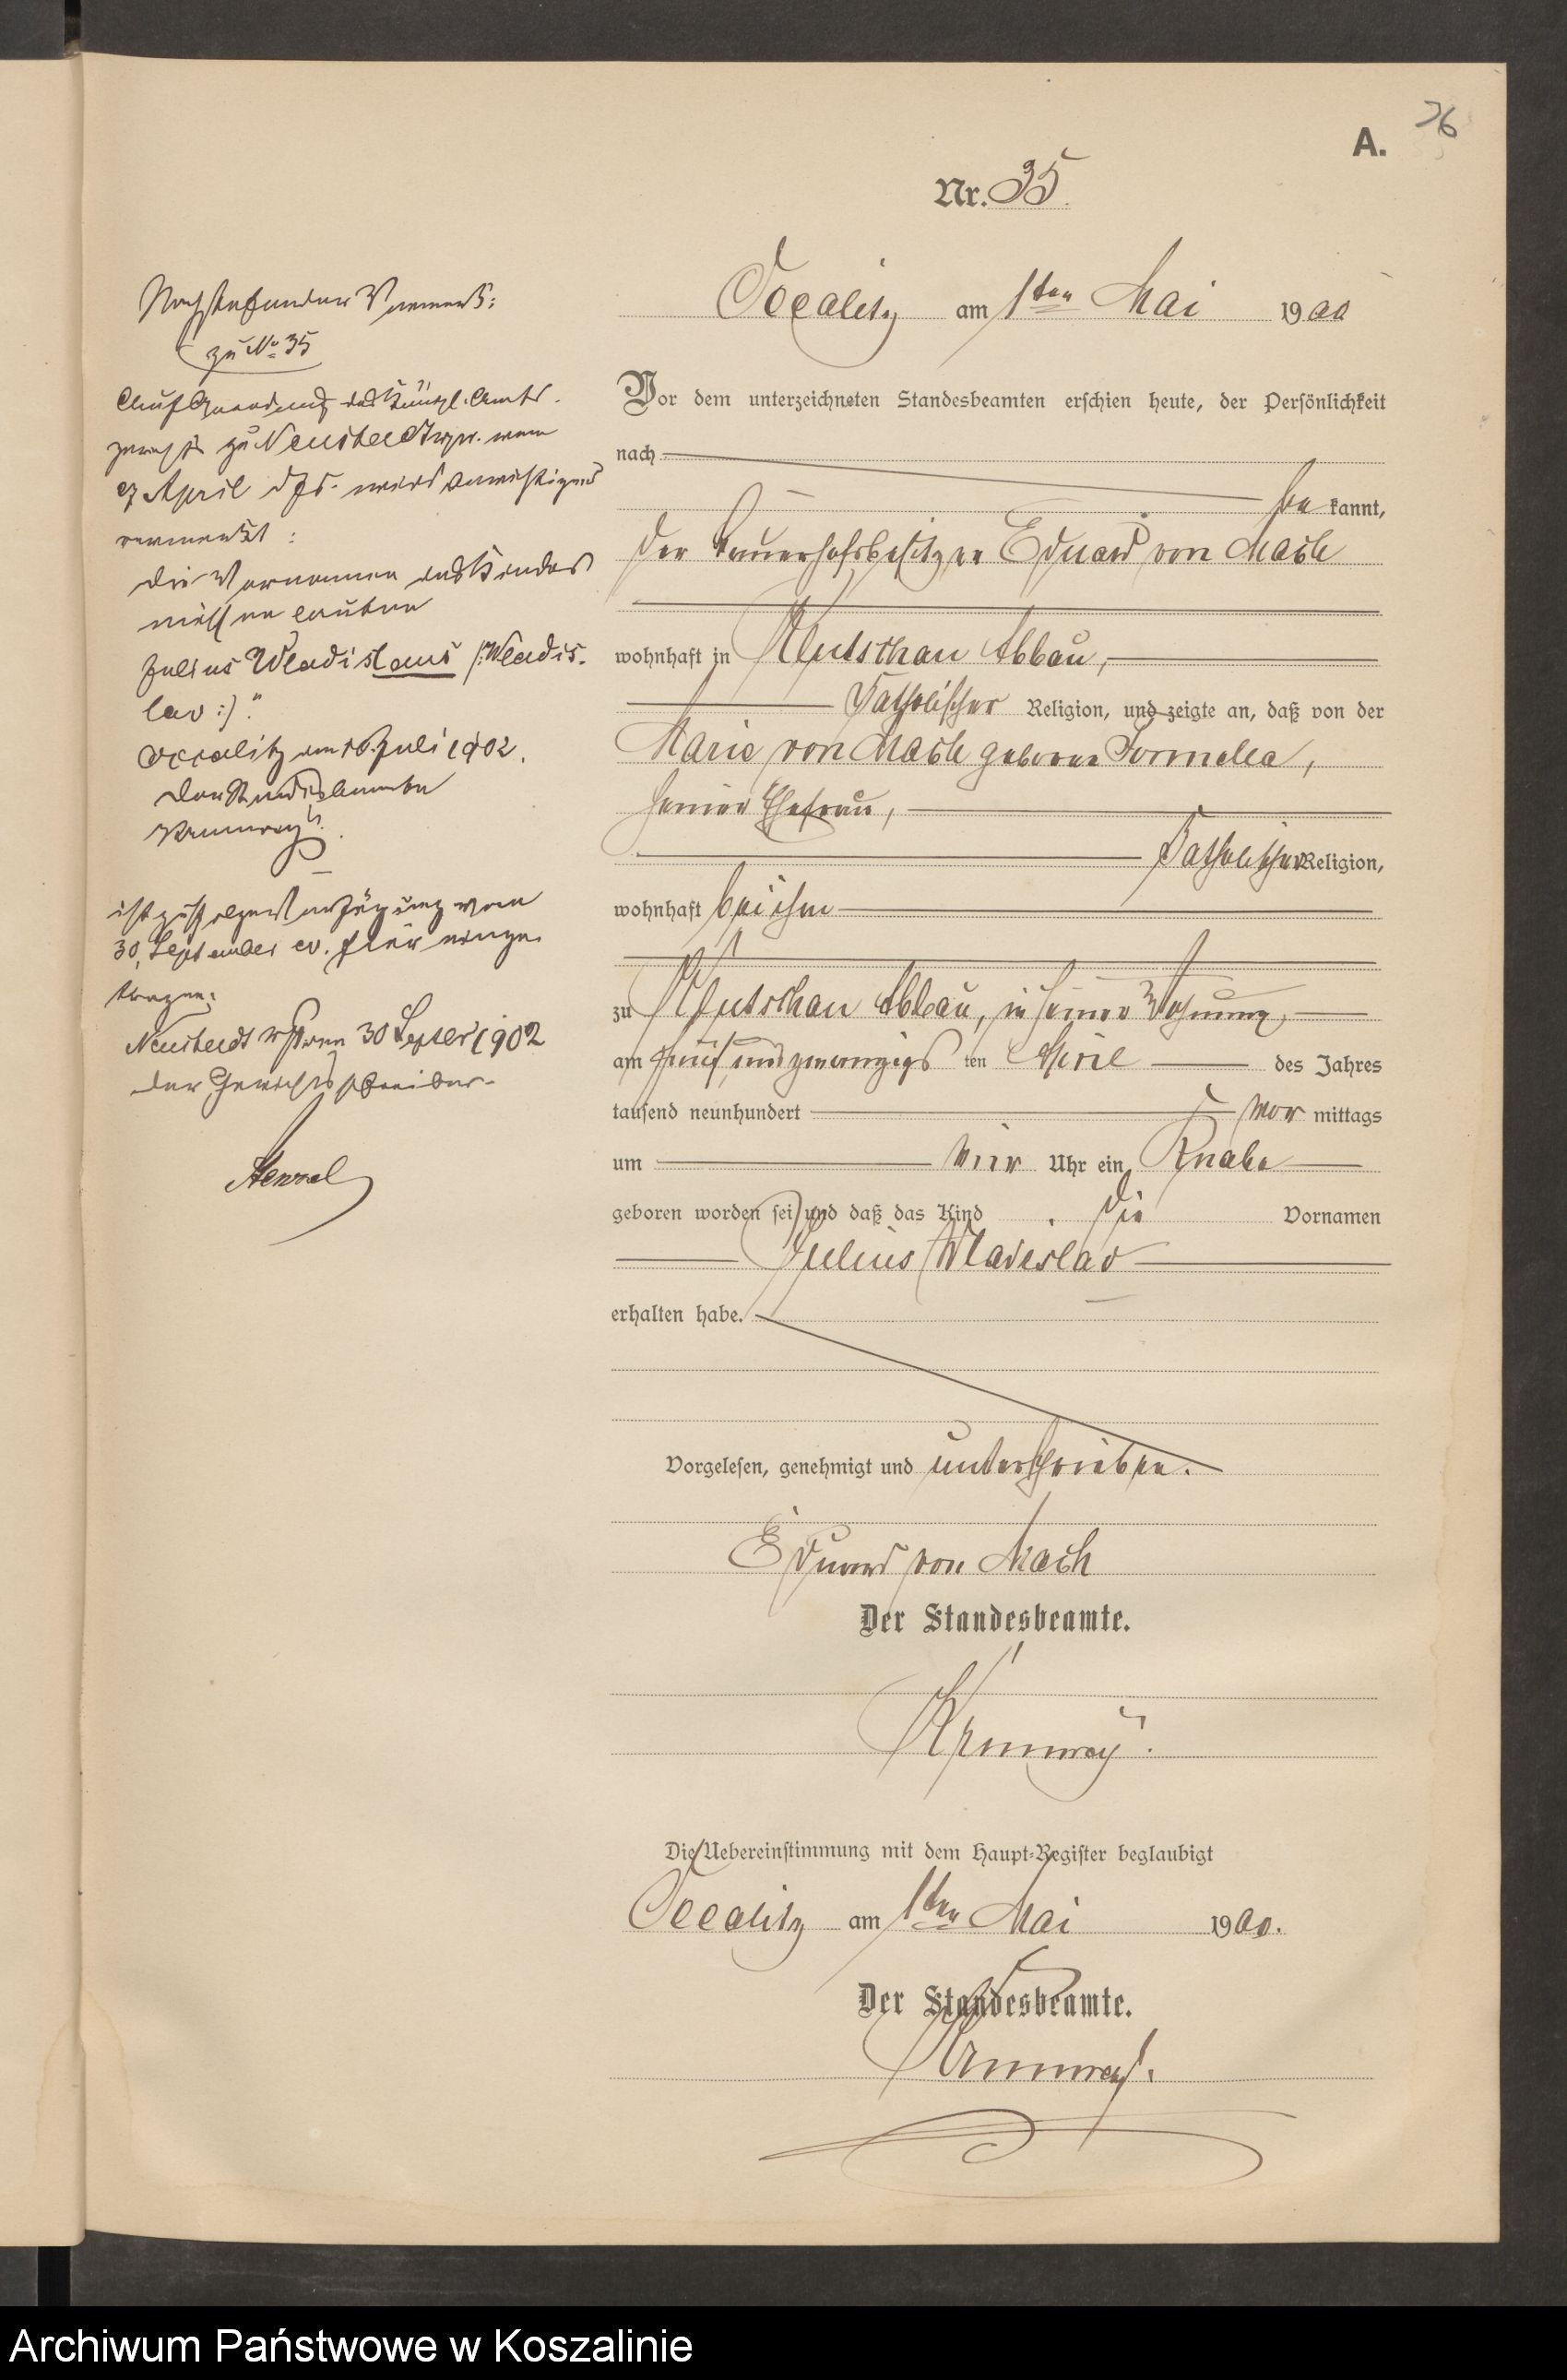 76
A.
Nr. 35.
Occalitz am 1ten Mai 1900
Vor dem unterzeichneten Standesbeamten erschien heute, der Persönlichkeit
nach
be kannt,
der Bauerhofsbesitzer Eduard von Mach
wohnhaft in Klutschau Abbau,
katholischer Religion, und zeigte an, daß von der
Marie von Mach geborne Formella,
seiner Ehefrau,
katholischer Religion,
wohnhaft bei ihm
zu Klutschau Abbau, in seiner Wohnung,
am fünf und zwanzigs ten April des Jahres
tausend neunhundert vor mittags
um vier Uhr ein Knabe
geboren worden sei und daß das Kind die Vornamen
Julius Wladislav
erhalten habe.
Vorgelesen, genehmigt und unterschrieben.
Eduard von Mach
Der Standesbeamte.
Die Uebereinstimmung mit dem Haupt-Register beglaubigt
Occalitz am 1ten Mai 1900.
Der Standesbeamte.
Nachstehender Vermerk:
zu No 35
Auf Anordnung des Königl. Amts-
gerichts zu Neustadt wpr. vom
April d Js. wird berichtigend
vermerkt:
die Vornamen des Kindes
müssen lauten
Julius Wladislaus /:Wladis-
lav:)."
Occalitz am 10. Juli 1902.
Der Standesbeamte
ist zufolge Verfügung vom
30. September cr. hier einge-
tragen.
Neustadt wpr den 30 Septer 1902
Der Gerichtsschreiber
Archiwum Państwowe w Koszalinie